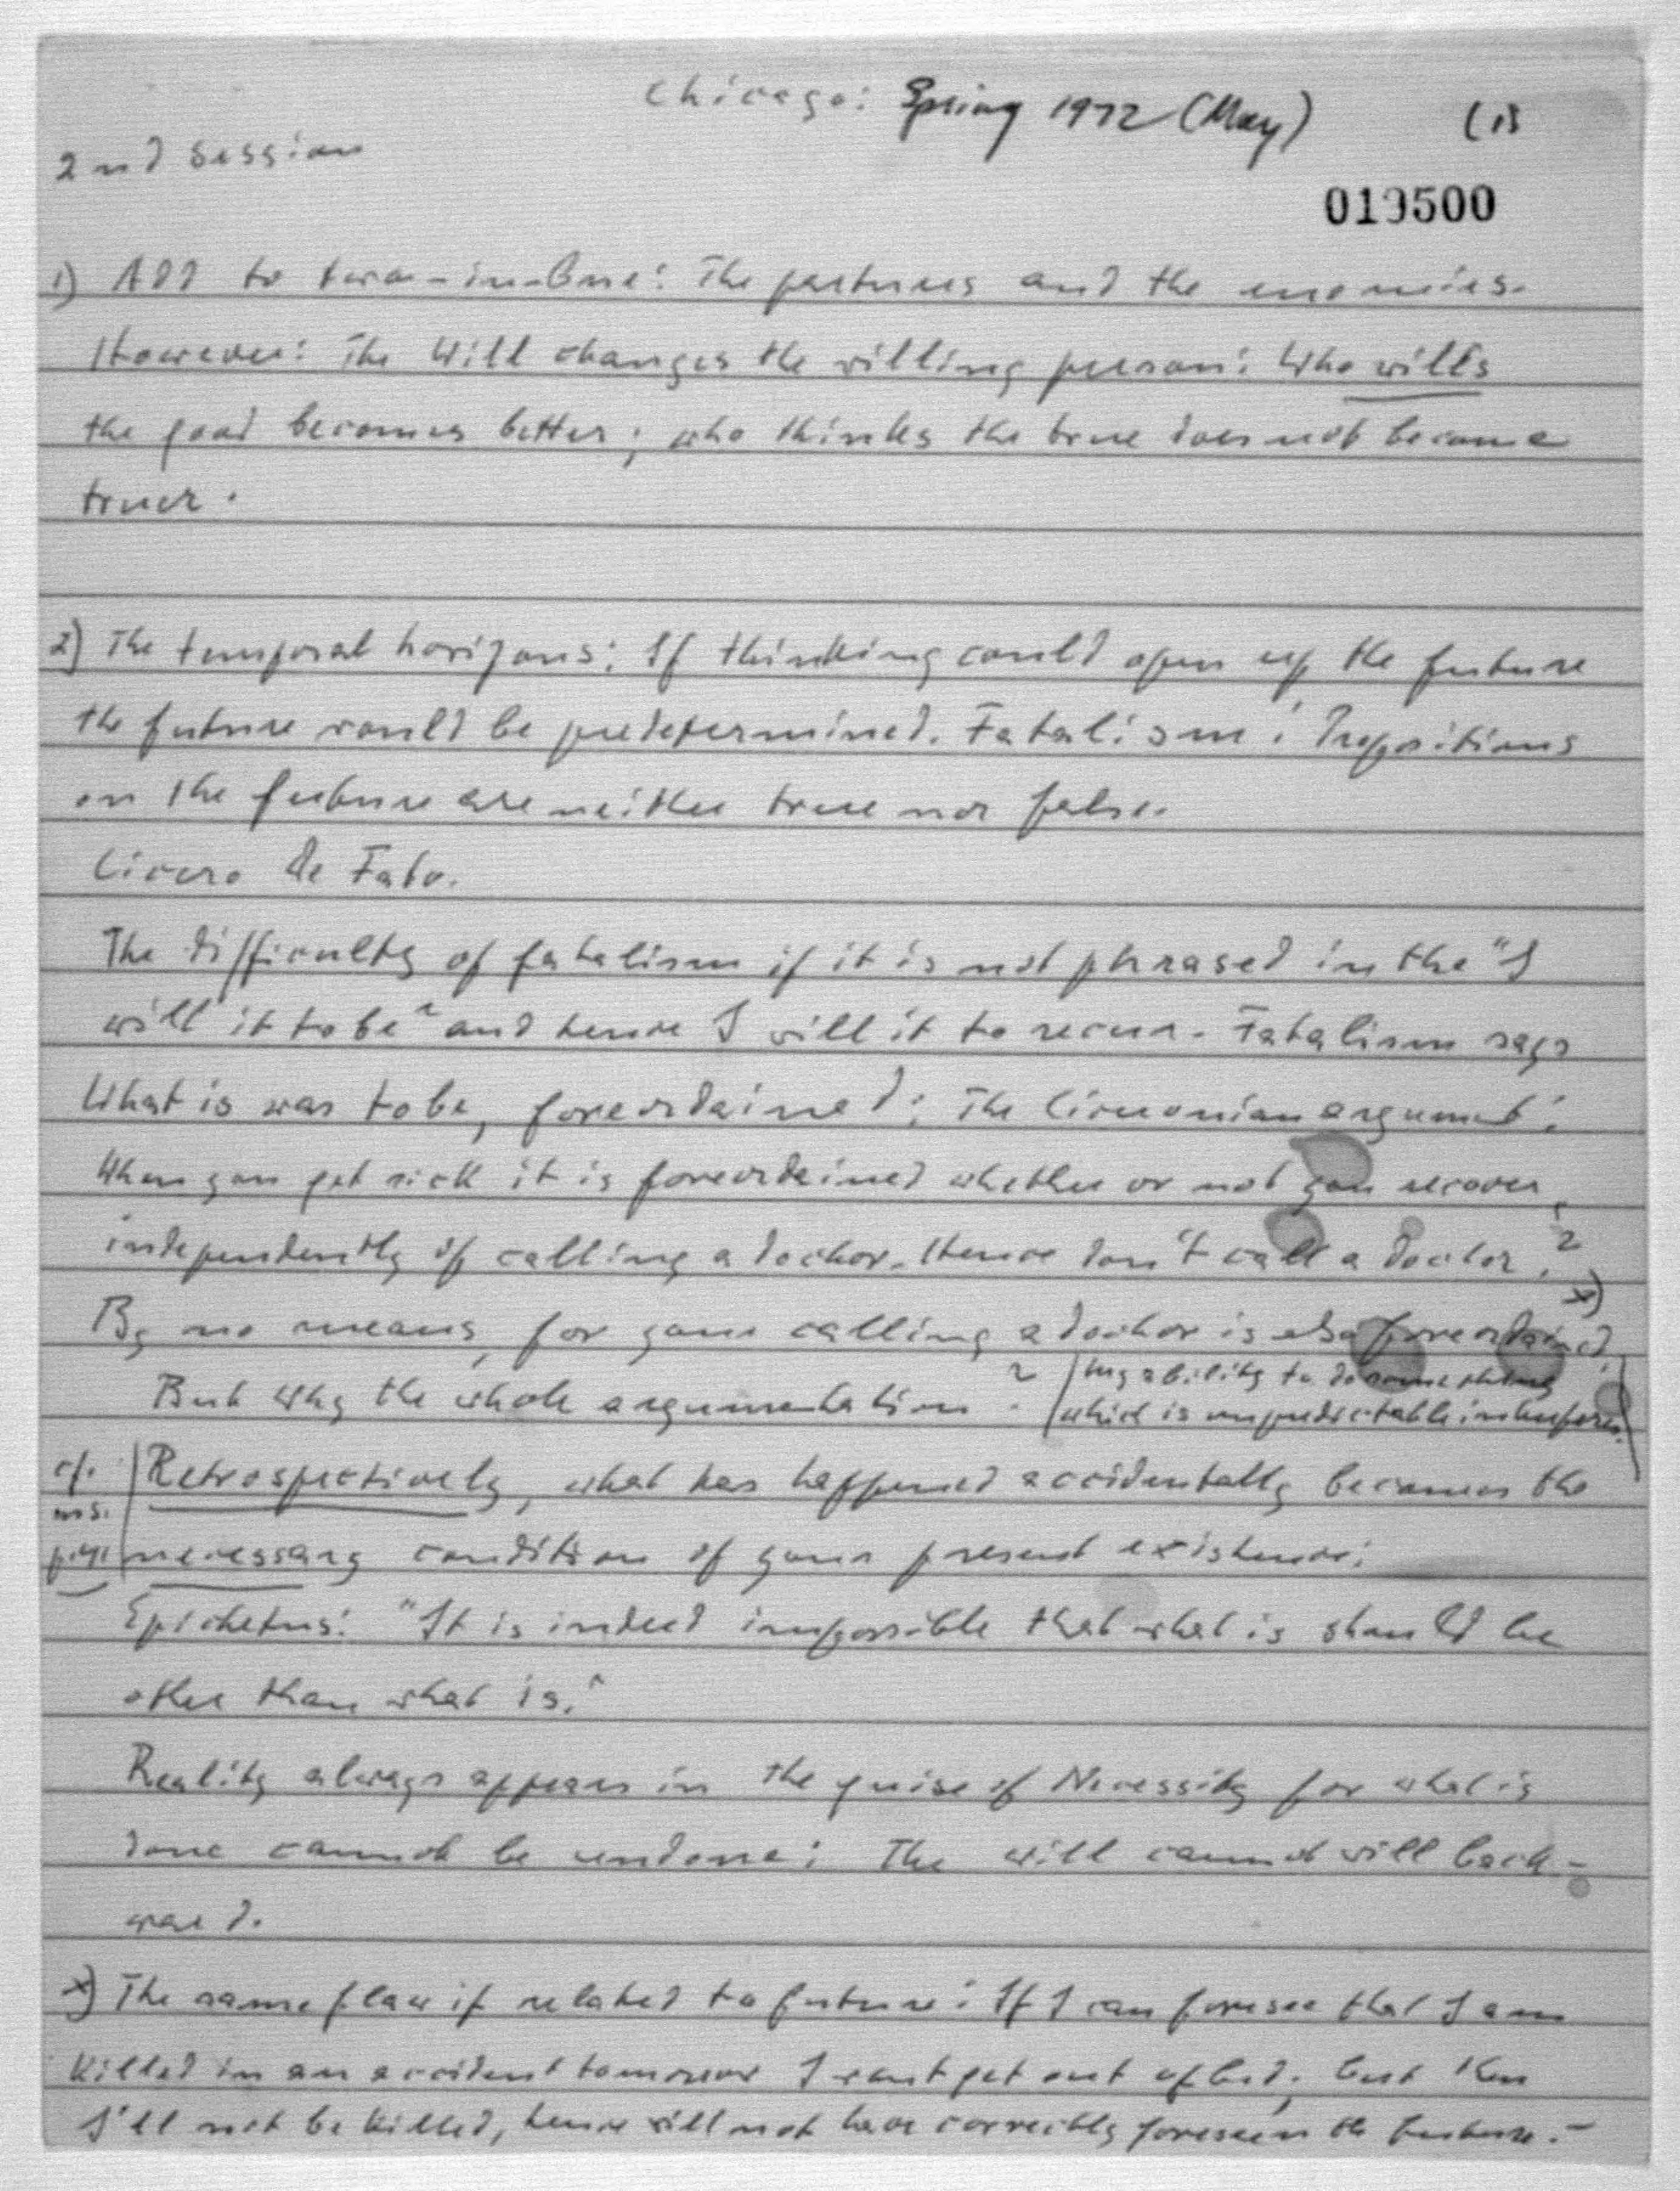 Chicago: Spring 1972 (May) (1)
2nd session
013500
1) Add to two-in-One: The partners and the enemies.
However: The Will changes the willing person: Who wills
the good becomes better; who thinks the true does not become
truer.
2) The temporal horizons: If thinking could open up the future
the future would be predetermined. Fatalism: Propositions
on the future are neither true nor false.
Cicero De Fato.
The difficulty of fatalism if it is not phrased in the "I
will it to be" and hence I will it to recur. Fatalism says
What is was to be, foreordained: The Ciceronian argument:
When you get sick it is foreordained whether or not you recover,
independently of calling a doctor. Hence don't call a doctor?
x)
By no means, for your calling a doctor is also foreordained.
But Why the whole argumentation? / my ability to do something
/ which is unpredictable
cf. | Retrospectively, what has happened accidentally becomes the
ms.
necessary condition of your present existence:
Epictetus: "It is indeed impossible that what is should be
other than what is."
Reality always appears in the guise of Necessity for what is
done cannot be undone: The will cannot will back-
ward.
x) The same flaw if related to future: If I can foresee that I am
killed in an accident tomorrow I won't get out of bed; but then
I'll not be killed, hence will not have correctly foreseen the future.-